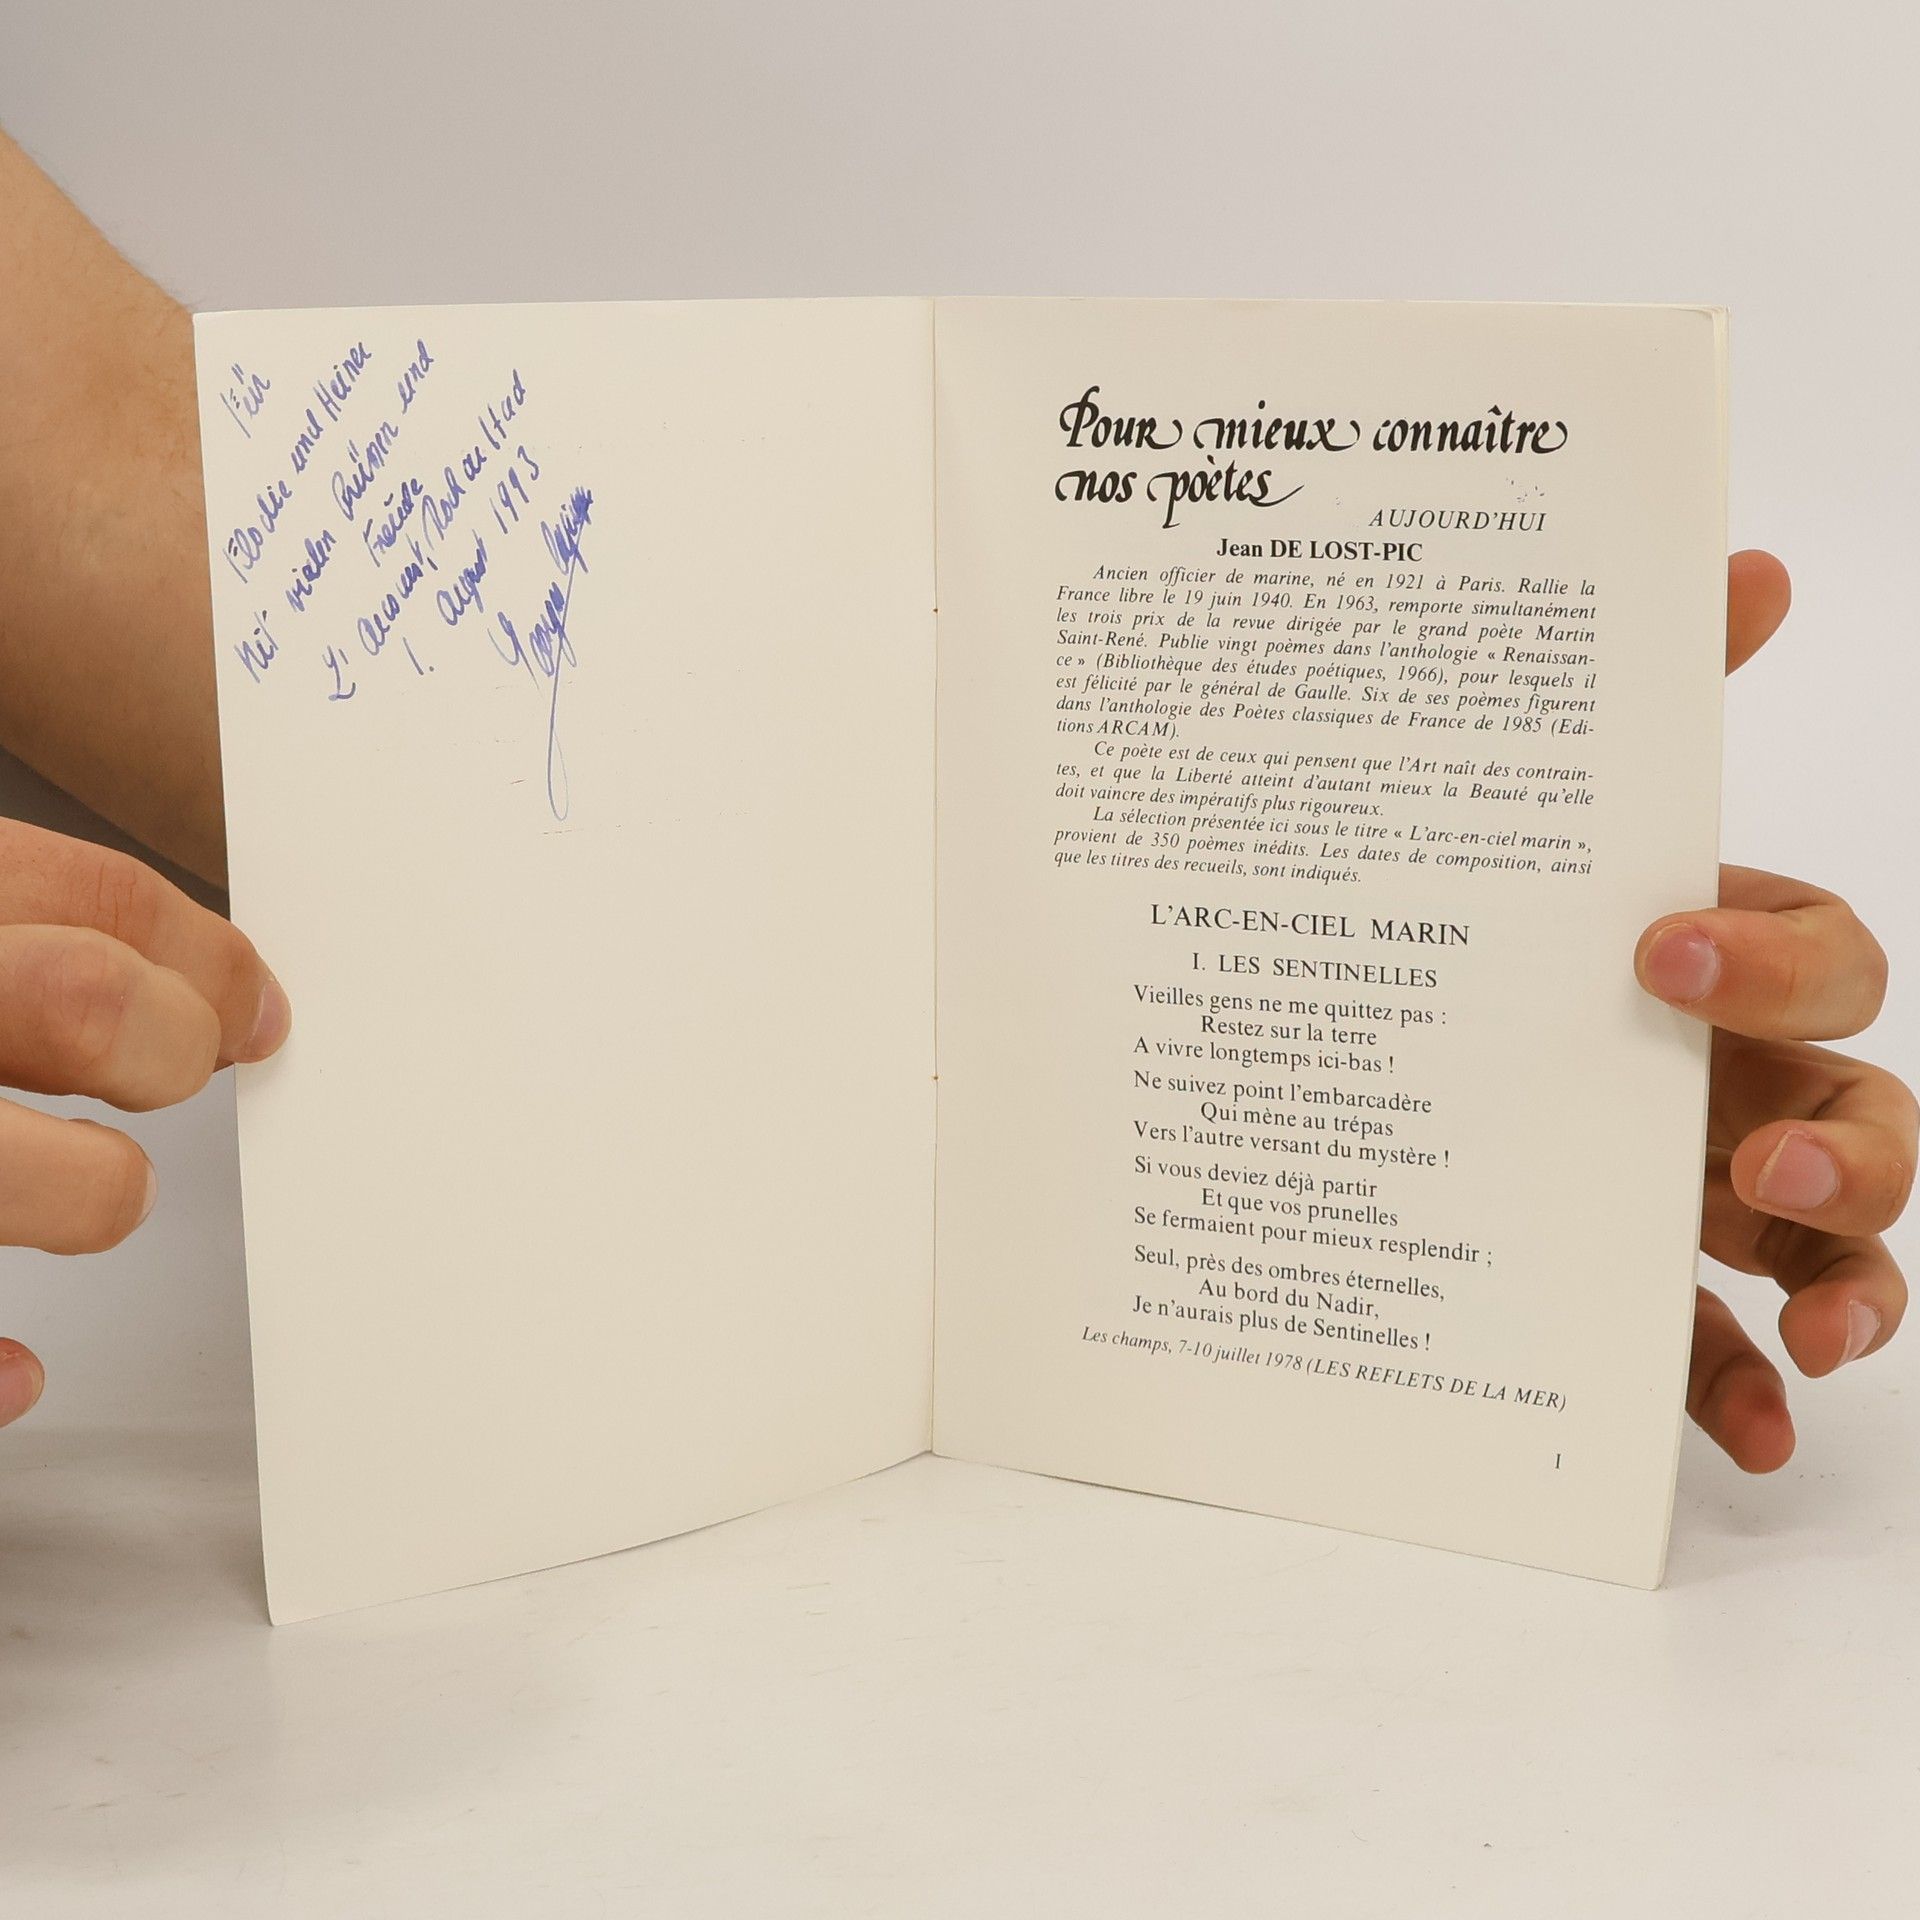 Für
Elodie und Heiner
Mit vielen und
Freude
L'Arcouest,
1. August 1993
Pour mieux connaître
nos poètes
AUJOURD'HUI
Jean DE LOST-PIC
Ancien officier de marine, né en 1921 à Paris. Rallie la
France libre le 19 juin 1940. En 1963, remporte simultanément
les trois prix de la revue dirigée par le grand poète Martin
Saint-René. Publie vingt poèmes dans l'anthologie « Renaissan-
ce » (Bibliothèque des études poétiques, 1966), pour lesquels il
est félicité par le général de Gaulle. Six de ses poèmes figurent
dans l'anthologie des Poètes classiques de France de 1985 (Edi-
tions ARCAM).
Ce poète est de ceux qui pensent que l'Art naît des contrain-
tes, et que la Liberté atteint d'autant mieux la Beauté qu'elle
doit vaincre des impératifs plus rigoureux.
La sélection présentée ici sous le titre « L'arc-en-ciel marin »,
provient de 350 poèmes inédits. Les dates de composition, ainsi
que les titres des recueils, sont indiqués.
L'ARC-EN-CIEL MARIN
I. LES SENTINELLES
Vieilles gens ne me quittez pas :
Restez sur la terre
A vivre longtemps ici-bas !
Ne suivez point l'embarcadère
Qui mène au trépas
Vers l'autre versant du mystère !
Si vous deviez déjà partir
Et que vos prunelles
Se fermaient pour mieux resplendir ;
Seul, près des ombres éternelles,
Au bord du Nadir,
Je n'aurais plus de Sentinelles !
Les champs, 7-10 juillet 1978 (LES REFLETS DE LA MER)
I